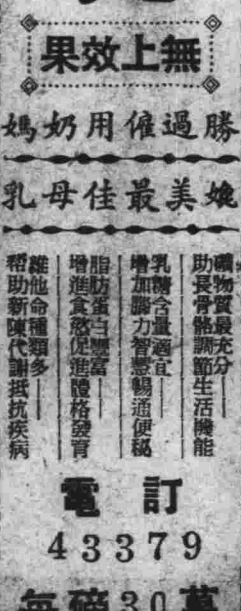 無上效果
勝過僱用奶媽
媲美最佳母乳
礦物質最充分——
助長骨骼調節生活機能
乳糖含量適宜——
增加腦力智慧暢通便秘
脂肪蛋白豐富——
增進食慾促進體格發育
維他命種類多——
幫助新陳代謝抵抗疾病
訂電
43379
萬30磅每